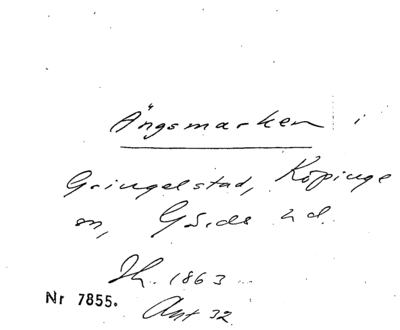 Ängsmarken i
Gringelstad, Köpinge
sn, Gärds hd.
Th. 1863
Nr 7855.
Avt 32